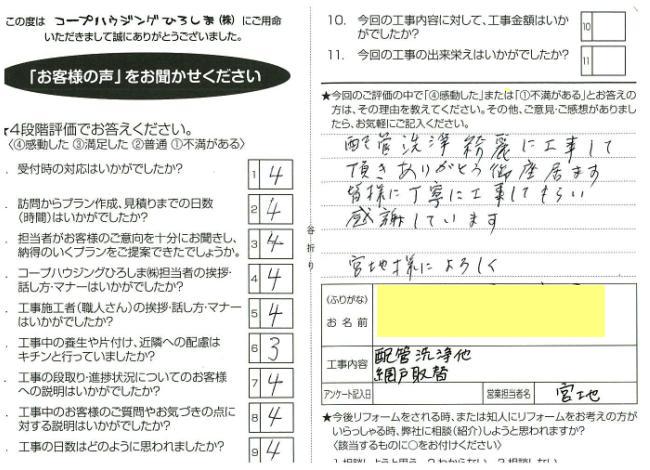 この度は コープハウジングひろしま(株) にご用命
いただきまして誠にありがとうございました。
「お客様の声」をお聞かせください
4段階評価でお答えください。
〈④感動した ③満足した ②普通 ①不満がある〉
. 受付時の対応はいかがでしたか?
1 4
. 訪問からプラン作成、見積りまでの日数
(時間)はいかがでしたか?
2 4
. 担当者がお客様のご意向を十分にお聞きし、
納得のいくプランをご提案できたでしょうか。
3 4
. コープハウジングひろしま㈱担当者の挨拶・
話し方・マナーはいかがでしたか?
4 4
. 工事施工者(職人さん)の挨拶・話し方・マナー
はいかがでしたか?
5 4
. 工事中の養生や片付け、近隣への配慮は
キチンと行っていましたか?
6 3
. 工事の段取り・進捗状況についてのお客様
への説明はいかがでしたか?
7 4
. 工事中のお客様のご質問やお気づきの点に
対する説明はいかがでしたか?
8 4
. 工事の日数はどのように思われましたか?
9 4
谷折り
10. 今回の工事内容に対して、工事金額はいか
がでしたか?
10
11. 今回の工事の出来栄えはいかがでしたか?
11
★今回のご評価の中で「④感動した」または「①不満がある」とお答えの
方は、その理由を教えてください。その他、ご意見・ご感想がありまし
たら、お気軽にご記入ください。
配管洗浄綺麗に工事して
頂きありがとう御座居ます
皆様に丁寧に工事してもらい
感謝しています
宮地様によろしく
(ふりがな)
お名前
工事内容
配管洗浄他
網戸取替
アンケート記入日
営業担当者名
宮地
★今後リフォームをされる時、または知人にリフォームをお考えの方が
いらっしゃる時、弊社に相談(紹介)しようと思われますか?
〈該当するものに○をお付けください〉